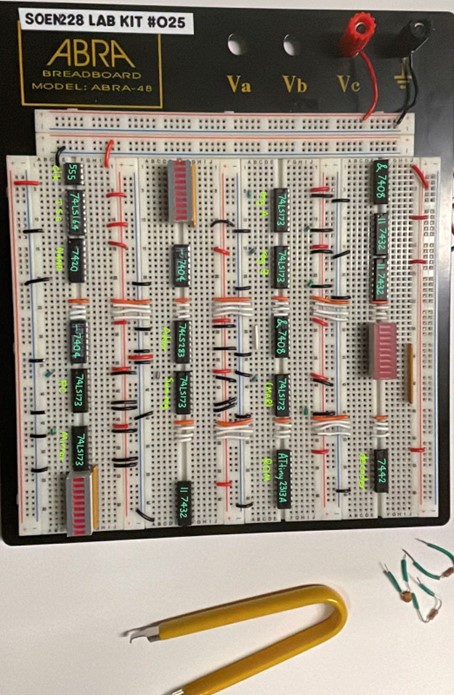 SOEN228 LAB KIT #025
ABRA
BREADBOARD
MODEL: ABRA-48
Va
Vb
Vc
555
74LS164
7420
7404
74LS173
74LS173
7404
74LS283
74LS173
11 7432
74LS173
74LS173
& 7408
74LS173
ATtiny2313A
& 7408
11 7432
11 7432
7442